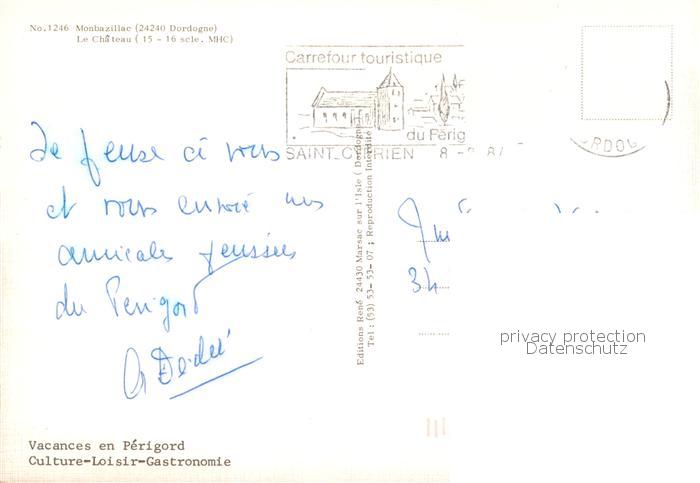 No.1246 Monbazillac (24240 Dordogne)
Le Château ( 15 - 16 scle. MHC)
Carrefour touristique
du Périg
SAINT-CYPRIEN 8 - 8
RDOG
Je pense à vous
et vous envoie mes
amicales pensées
du Perigord
Editions René 24430 Marsac sur l'Isle ( Dordogne
Tel : (53) 53-53-07 ; Reproduction Interdite
34
privacy protection
Datenschutz
Vacances en Périgord
Culture-Loisir-Gastronomie